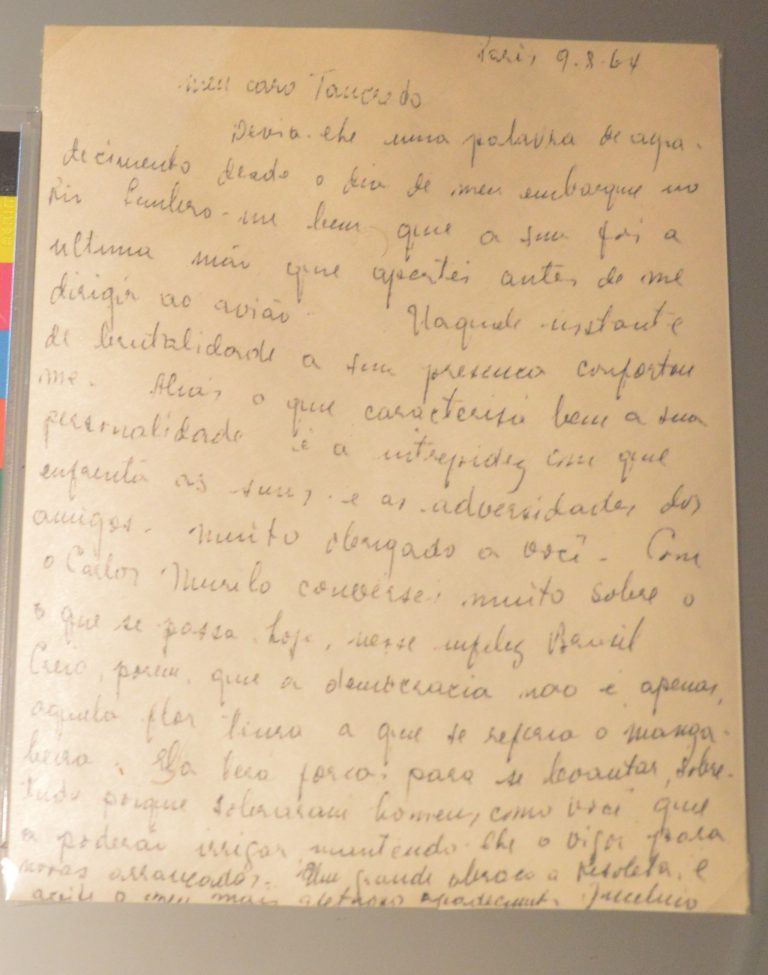 Paris 9.8.64
meu caro Tancredo
Devia-lhe uma palavra de agra-
decimento desde o dia de meu embarque no
Rio Lembro-me bem que a sua foi a
ultima mão que apertei antes de me
dirigir ao avião. Naquele instante
de brutalidade a sua presença confortou
me. Aliás o que caracterisa bem a sua
personalidade é a intrepidez com que
enfrenta as suas e as adversidades dos
amigos. Muito obrigado a você. Com
o Carlos Murilo conversei muito sobre o
o que se passa hoje, nesse infeliz Brasil
Creio, porem, que a democracia não é, apenas,
aquela flor tenra a que se referia o manga-
beira. Ela terá forças para se levantar, sobre-
tudo porque sobraram homens, como você que
a poderão irrigar mantendo-lhe o vigor para
novas arrancadas. Um grande abraço a Risoleta, e
aceite o meu mais afetuoso agradecimento Juscelino